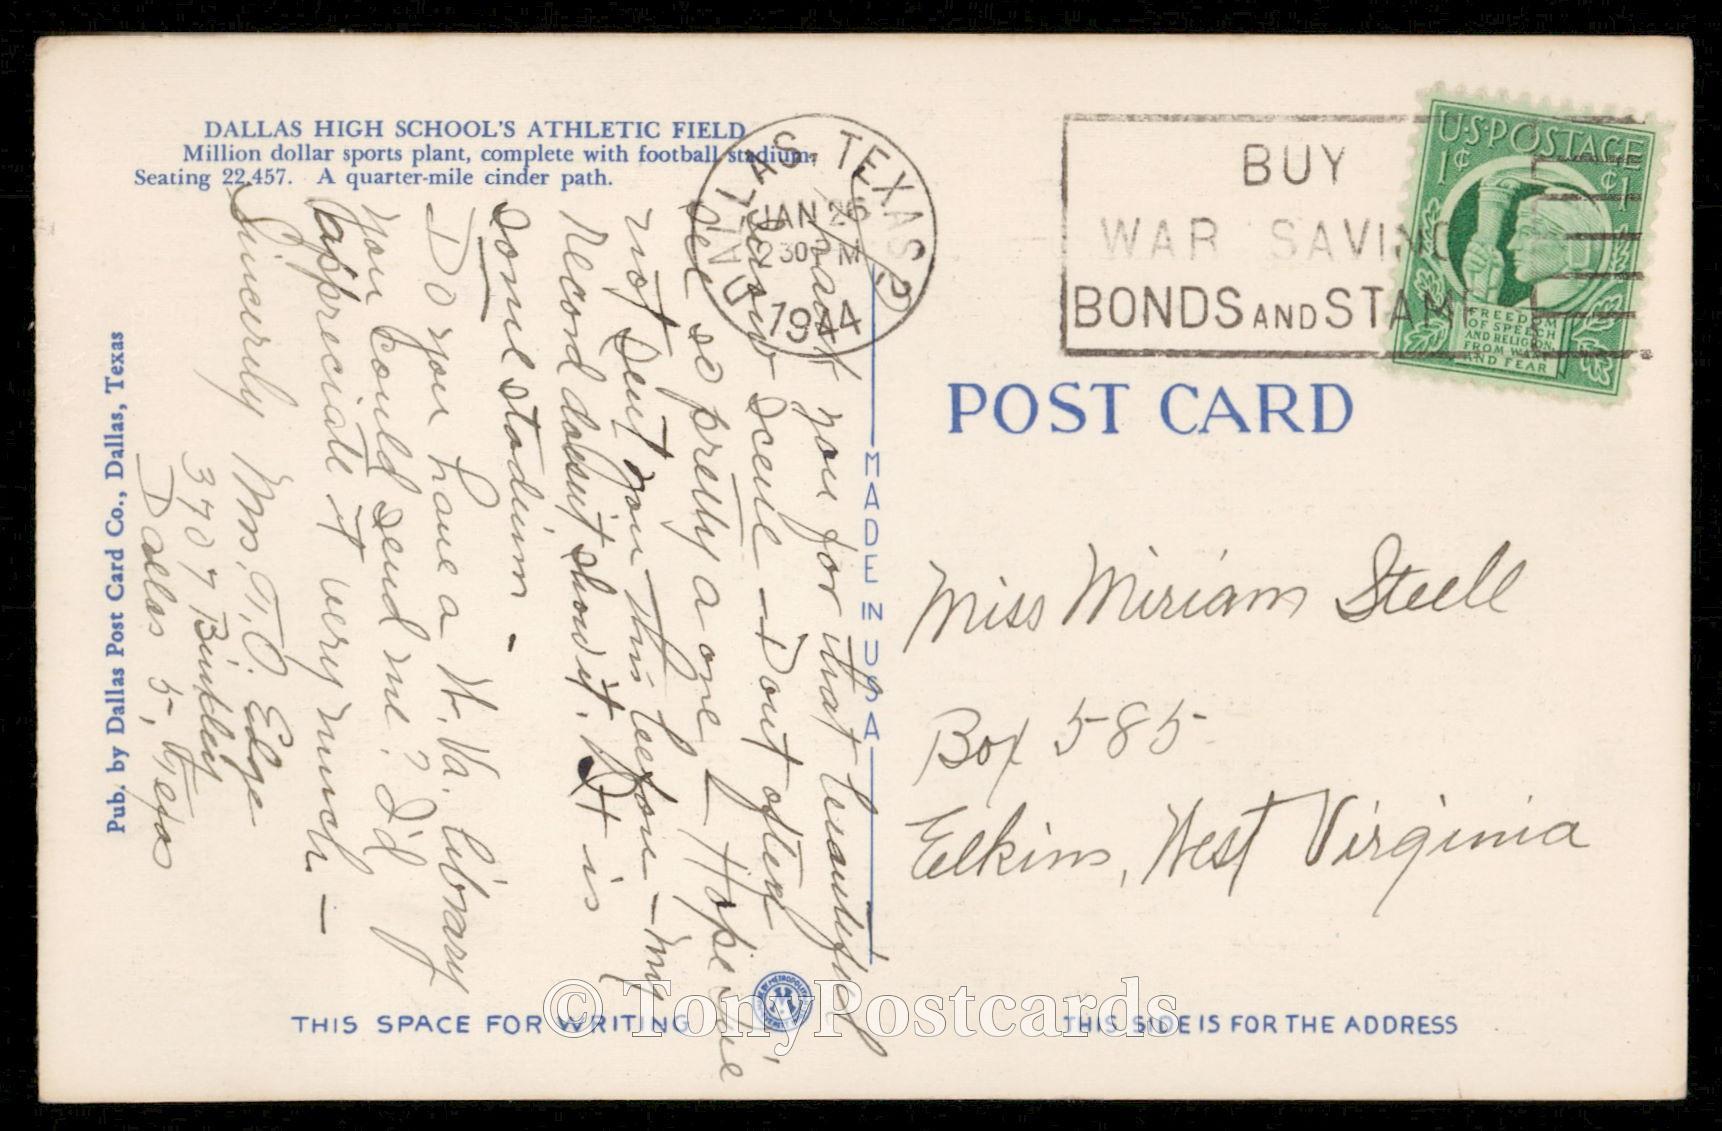 DALLAS HIGH SCHOOL'S ATHLETIC FIELD
Million dollar sports plant, complete with football stadium.
Seating 22,457. A quarter-mile cinder path.
DALLAS, TEXAS
JAN 26
2 30 PM
1944
BUY
WAR SAVINGS
BONDS AND STAMPS
U.S. POSTAGE
1¢ ¢1
FREEDOM
OF SPEECH
AND RELIGION,
FROM WANT
AND FEAR
POST CARD
Thank you for that beautiful
snow scene – Dont often
see so pretty a one – Hope I've
not sent you this before – my
Record doesn't show it. It is
some stadium –
Do you have a W. Va. library
you could send me? I'd
appreciate it very much –
Sincerely Mrs. T. O. Edge
3707 Binkley
Dallas 5, Texas
Pub. by Dallas Post Card Co., Dallas, Texas
MADE IN USA
Miss Miriam Steele
Box 585
Elkins, West Virginia
THIS SPACE FOR WRITING
THIS SIDE IS FOR THE ADDRESS
© TonyPostcards